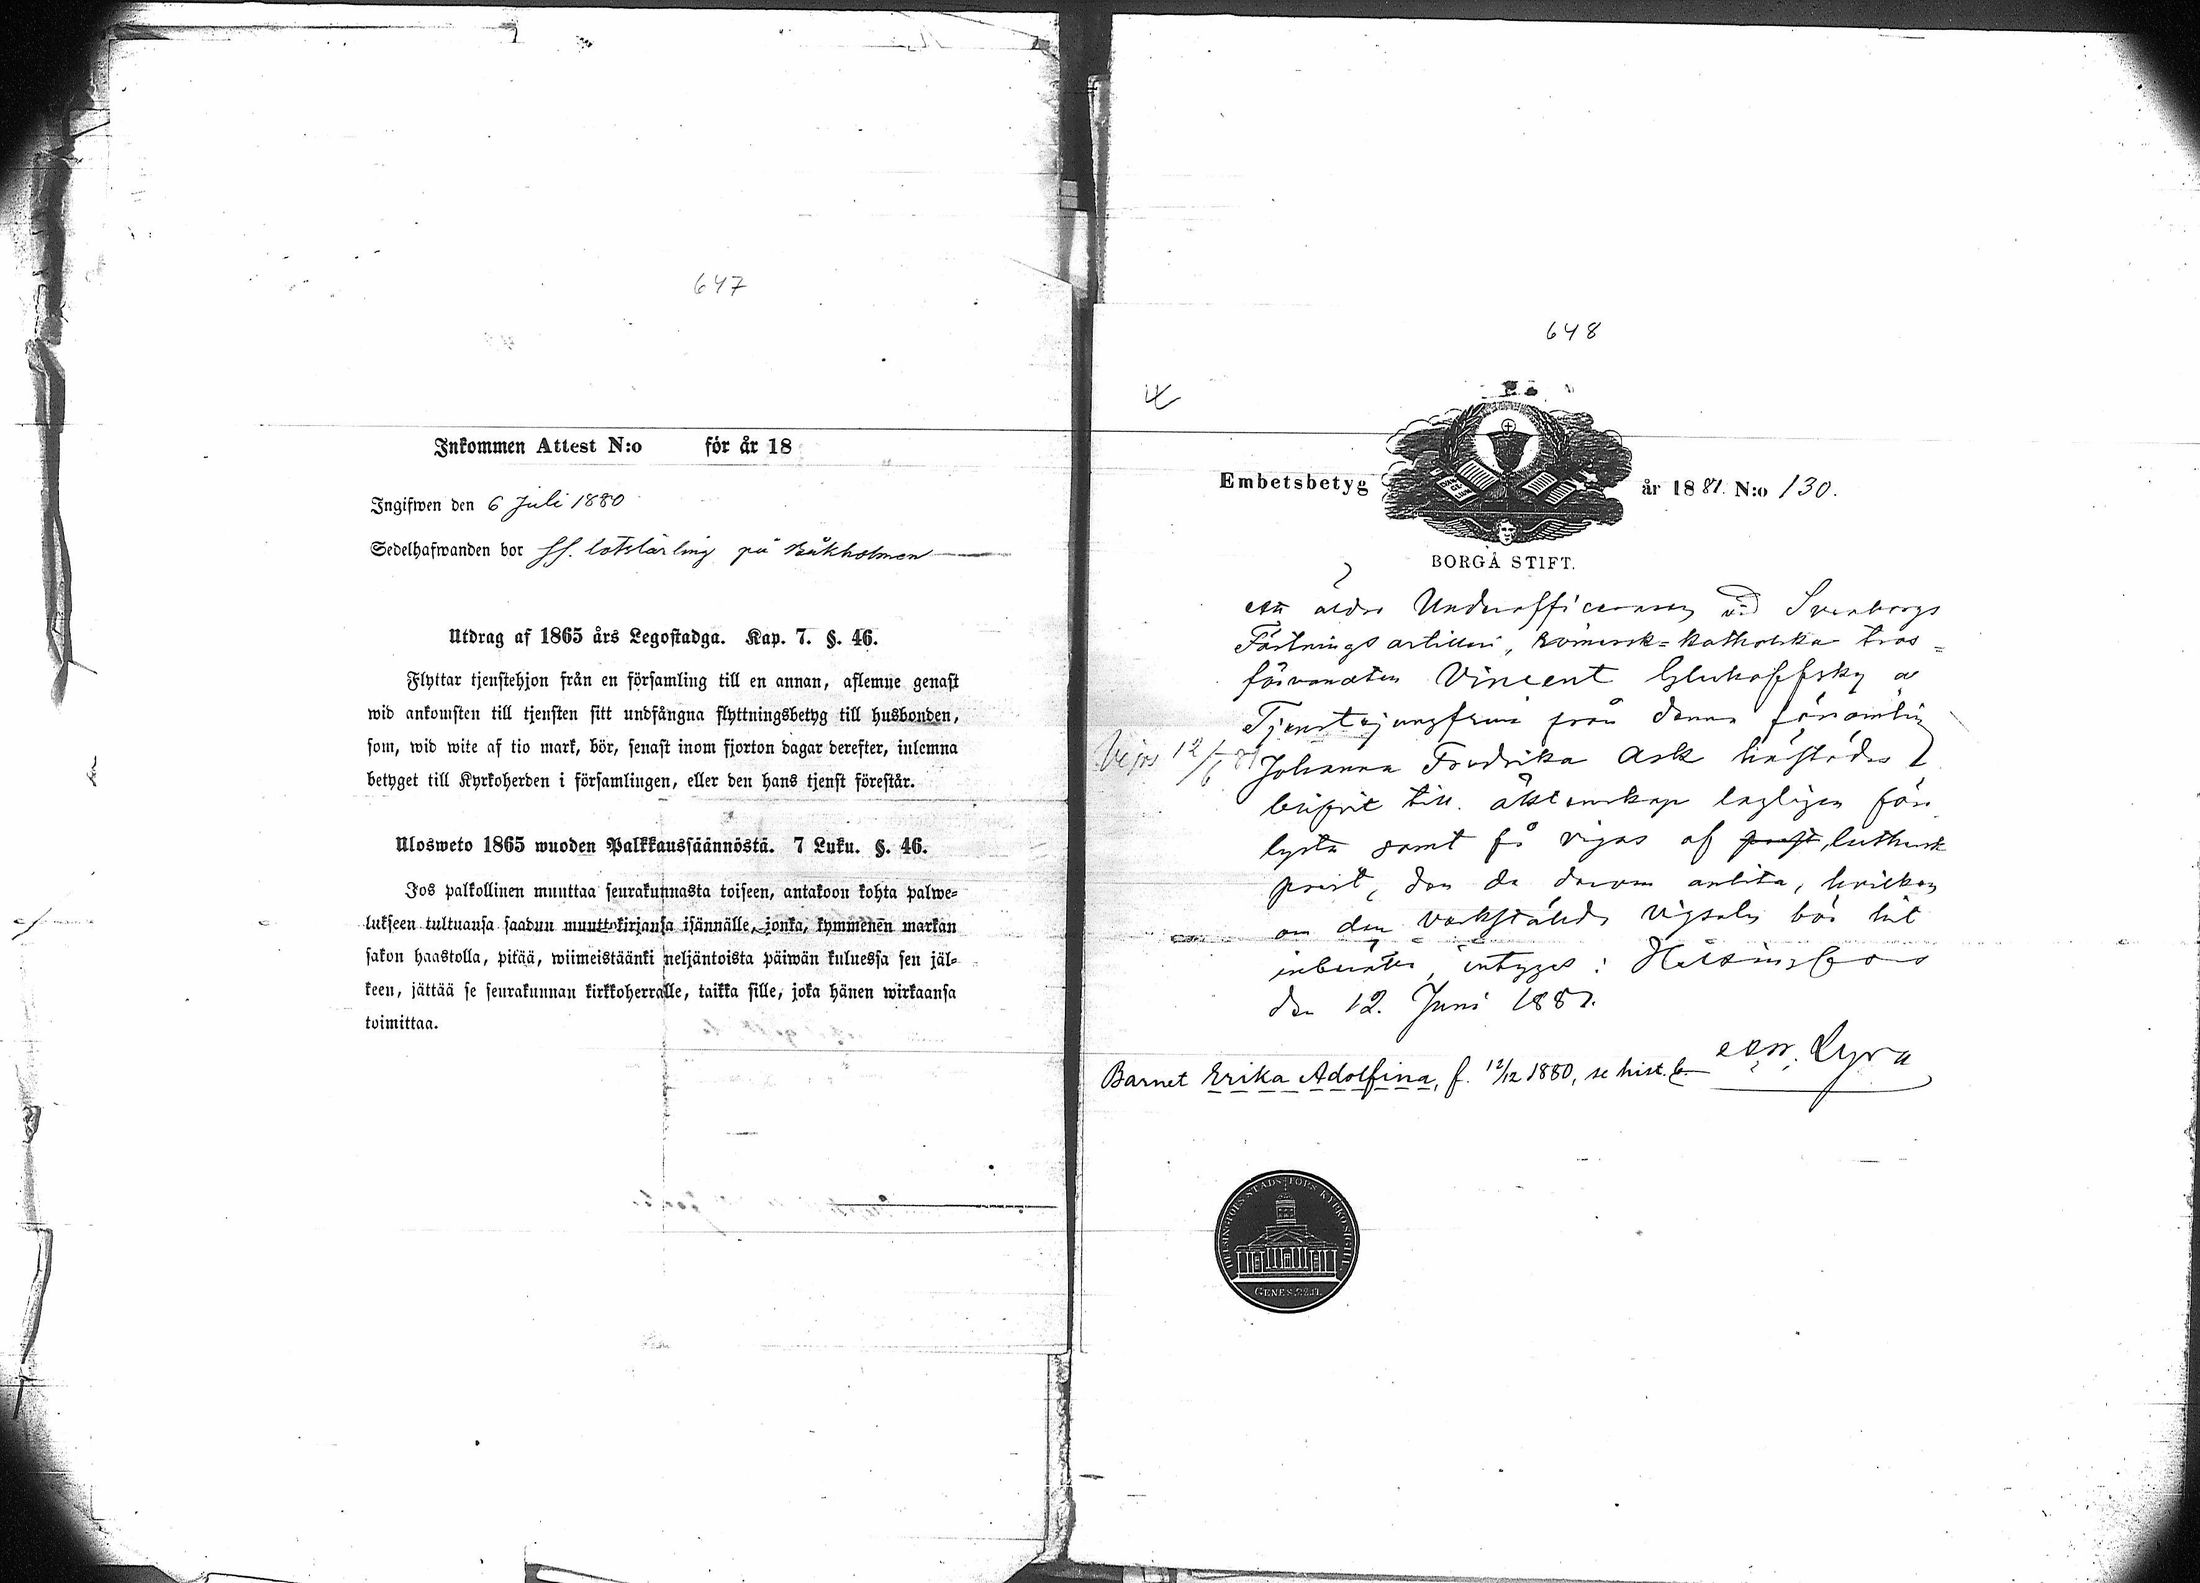 647
Inkommen Attest N:o för år 18
Ingifwen den 6 Juli 1880
Sedelhafwanden bor ff. lotslärling på Båkholmen
Utdrag af 1865 års Legostadga. Kap. 7. §. 46.
Flyttar tjenstehjon från en församling till en annan, aflemne genast
wid ankomsten till tjensten sitt undfångna flyttningsbetyg till husbonden,
som, wid wite af tio mark, bör, senast inom fjorton dagar derefter, inlemna
betyget till Kyrkoherden i församlingen, eller den hans tjenst förestår.
Ulosweto 1865 wuoden Palkkaussäännöstä. 7 Luku. §. 46.
Jos palkollinen muuttaa seurakunnasta toiseen, antakoon kohta palwe-
lukseen tultuansa saadun muuttokirjansa isännälle, jonka, kymmenen markan
sakon haastolla, pitää, wiimeistäänki neljäntoista päiwän kuluessa sen jäl-
keen, jättää se seurakunnan kirkkoherralle, taikka sille, joka hänen wirkaansa
toimittaa.
648
Embetsbetyg år 1881. N:o 130.
BORGÅ STIFT.
att äldre Underofficeraren vid Sveaborgs
Fästningsartilleri, romersk-katholska tros-
förvandten Vincent Gluhoffsky o
Tjenstejungfrun från denna församling
Vigs 12/6 81 Johanna Fredrika Ask härstädes
blifvit till äktenskap lagligen för
lysta samt få vigas af prest, luthersk
prest, den de derom anlita, hvilken
om den verkstälda vigseln bör hit
inberätta, intygas: Helsingfors
den 12. Juni 1881.
Edv. Lyra
Barnet Erika Adolfina, f. 12/12 1880, se hist. b.
HELSINGFORS STADS FÖRS KYRKOSIGILL
GENES.